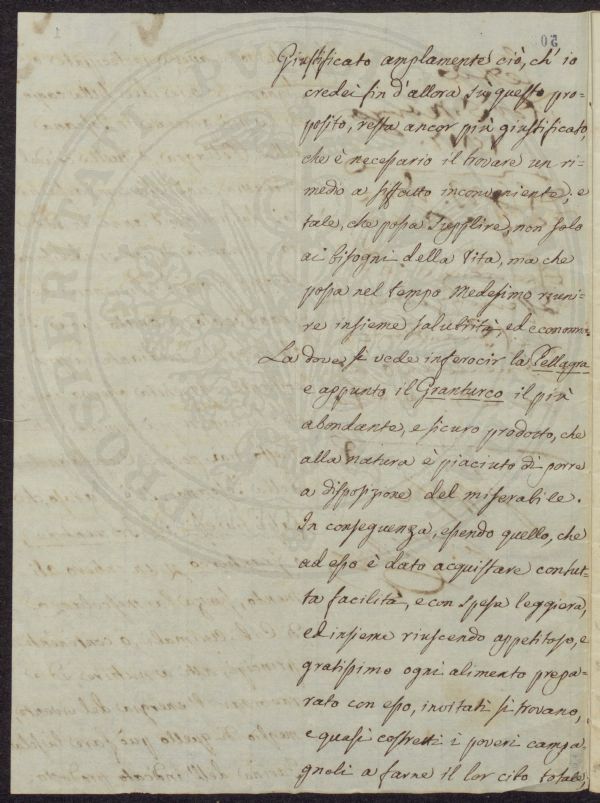 50
Giustificato amplamente ciò, ch'io
credei fin d'allora su questo pro-
posito, resta ancor più giustificato,
che è necessario il trovare un ri-
medio a siffatto inconveniente; e
tale, che possa supplire non solo
ai bisogni della Vita, ma che
possa nel tempo Medesimo riuni-
re insieme salubrità, ed economia.
La dove si vede inferocir la Pellagra
e appunto il Granturco il più
abondante, e sicuro prodotto, che
alla natura è piaciuto di porre
a disposizione del miserabile.
In conseguenza, essendo quello, che
ad esso è dato acquistare con tut-
ta facilità, e con spesa leggiera,
ed insieme riuscendo appetitoso, e
gratissimo ogni alimento prepa-
rato con esso, invitati si trovano,
e quasi costretti i poveri campa-
gnoli a farne il lor cibo totale,